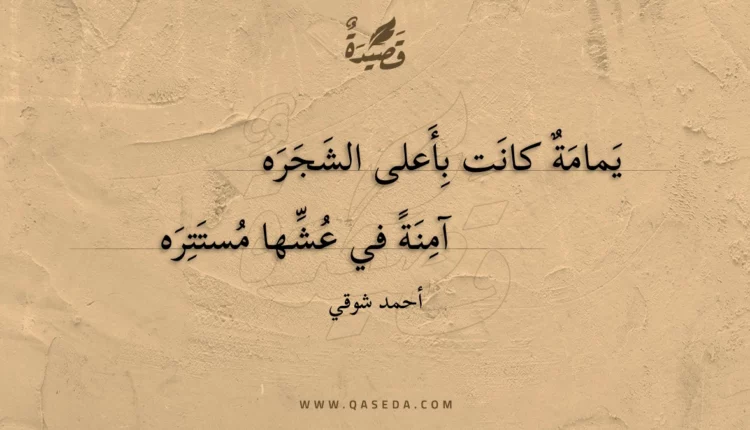 قَصِيدَةٌ
يَمامَةٌ كانَت بِأَعلى الشَجَرَه
آمِنَةً في عُشِّها مُستَتِرَه
أحمد شوقي
WWW.QASEDA.COM